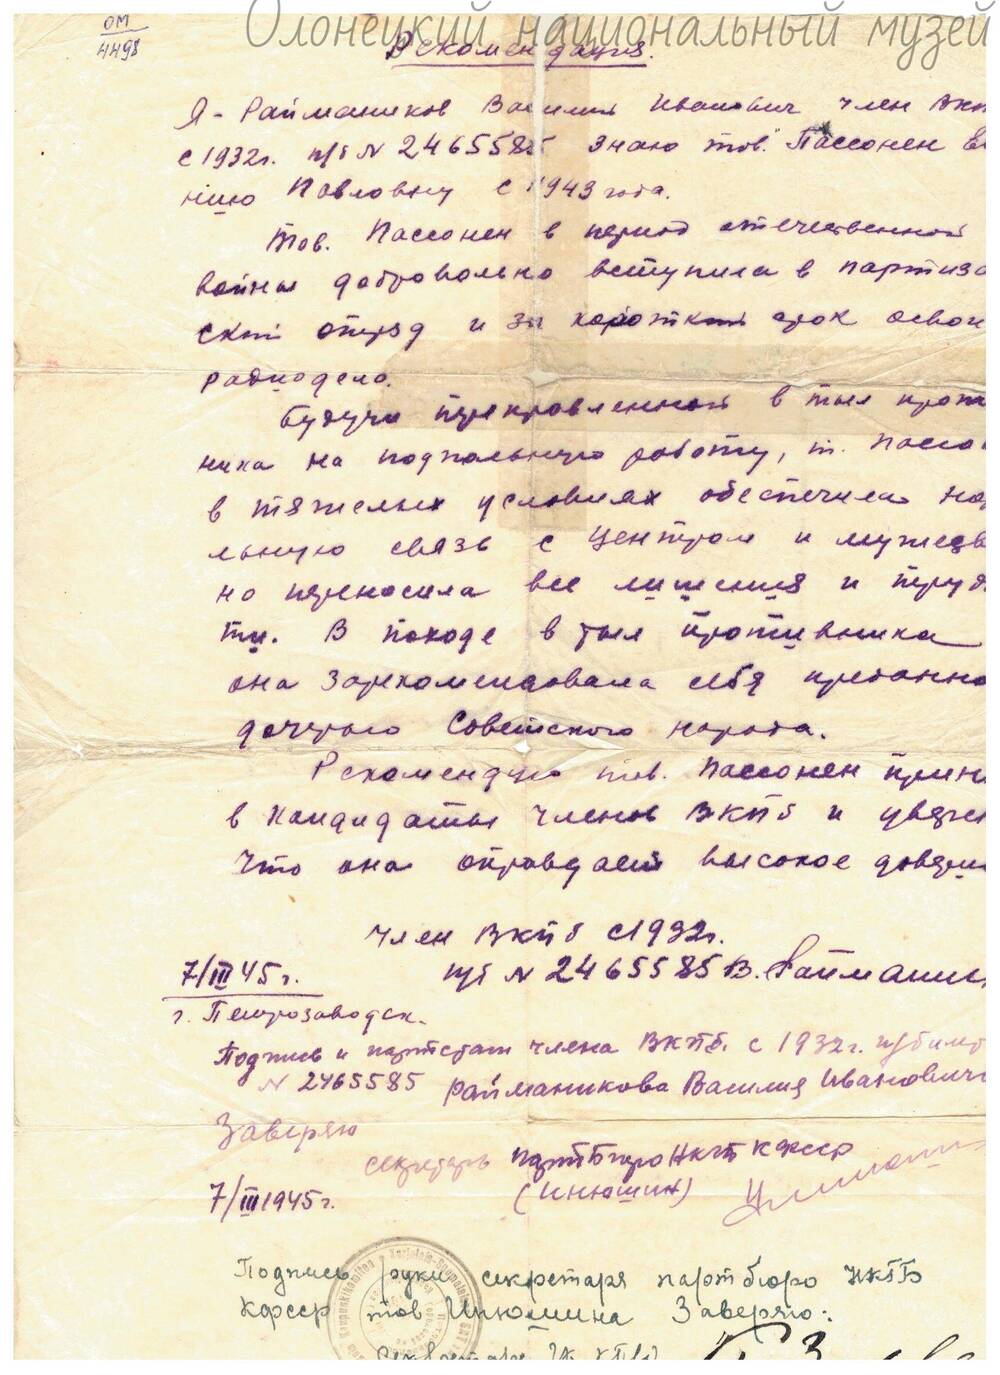 Олонецкий национальный музей
ОМ
4498
Рекомендация.
Я - Раймаников Василий Иванович член ВКП
с 1932г. п/б N 2465585 знаю тов. Пассонен
Павловну с 1943 года.
Тов. Пассонен в период отечественной
войны добровольно вступила в партиза
ский отряд и за короткий срок освои
радиодело.
Будучи направленной в тыл проти
ника на подпольную работу, т. Пассо
в тяжелых условиях обеспечила
льную связь с Центром и мужеств
но переносила все лишения и труд
ти. В походе в тыл противника
она зарекомендовала себя преданно
дочерью Советского народа.
Рекомендую тов. Пассонен прин
в кандидаты членов ВКПб и уверен
что она оправдает высокое довери
Член ВКПб с 1932г.
7/III 45г. п/б N 2465585 В. Райманик
г. Петрозаводск.
Подпись и партстаж члена ВКПб. с 1932г. п/билет
N 2465585 Райманикова Василия Иванович
Заверяю
секретарь партбюро НКГБ КФССР
7/III 1945г. (Инюшин)
Подпись руки секретаря партбюро НКГБ
КФССР тов Инюшина Заверяю: